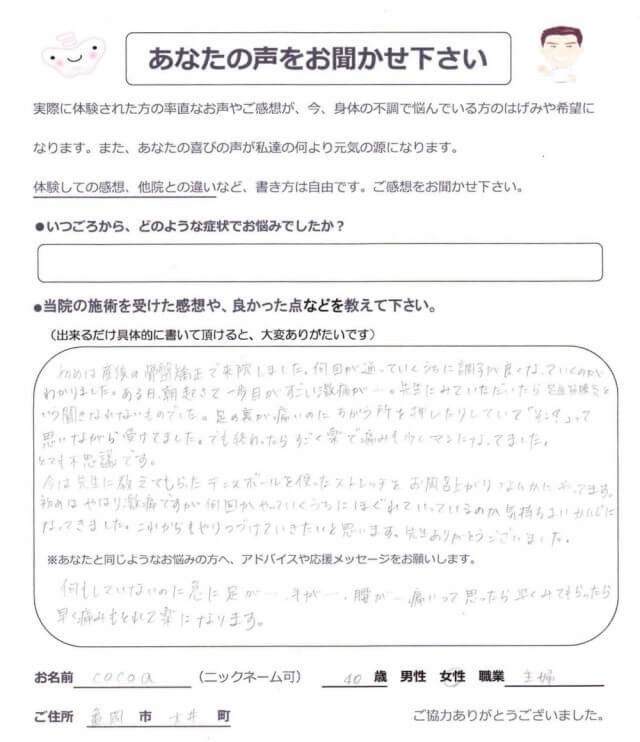 あなたの声をお聞かせ下さい
実際に体験された方の率直なお声やご感想が、今、身体の不調で悩んでいる方のはげみや希望に
なります。また、あなたの喜びの声が私達の何より元気の源になります。
体験しての感想、他院との違いなど、書き方は自由です。ご感想をお聞かせ下さい。
●いつごろから、どのような症状でお悩みでしたか？
●当院の施術を受けた感想や、良かった点などを教えて下さい。
（出来るだけ具体的に書いて頂けると、大変ありがたいです）
初めは産後の骨盤矯正で来院しました。何回か通っていくうちに調子が良くなっていくのが
わかりました。ある日、朝起きて一歩目がすごい激痛が…。先生にみていただいたら足底筋膜炎と
いう聞きなれないものでした。足の裏が痛いのにちがう所を押したりしていて「そこ？」って
思いながら受けてました。でも終わったらすごく楽で痛みも少しマシになってました。
とても不思議です。
今は先生に教えてもらったテニスボールを使ったストレッチをお風呂上がりなんかにやってます。
初めはやはり激痛ですが何回かやっていくうちにほぐれていっているのか気持ちよいかんじに
なってきました。これからもやりつづけていきたいと思います。先生ありがとうございました。
※あなたと同じようなお悩みの方へ、アドバイスや応援メッセージをお願いします。
何もしていないのに急に足が…、手が…、腰が…痛いって思ったら早くみてもらったら
早く痛みもとれて楽になります。
お名前 cocoa （ニックネーム可） 40 歳 男性 女性 職業 主婦
ご住所 亀岡 市 大井 町 ご協力ありがとうございました。